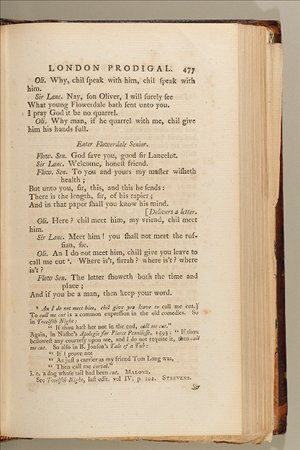 LONDON PRODIGAL. 477
Oli. Why, chil ſpeak with him, chil ſpeak with
him.
Sir Lanc. Nay, ſon Oliver, I will ſurely ſee
What young Flowerdale hath ſent unto you.
I pray God it be no quarrel.
Oli. Why man, if he quarrel with me, chil give
him his hands full.
Enter Flowerdale Senior.
Flow. Sen. God ſave you, good ſir Lancelot.
Sir Lanc. Welcome, honeſt friend.
Flow. Sen. To you and yours my maſter wiſheth
health;
But unto you, ſir, this, and this he ſends:
There is the length, ſir, of his rapier;
And in that paper ſhall you know his mind.
[Delivers a letter.
Oli. Here? chil meet him, my vriend, chil meet
him.
Sir Lanc. Meet him! you ſhall not meet the ruf-
fian, fie.
Oli. An I do not meet him, chill give you leave to
call me cut *. Where is't, ſirrah? where is't? where
is't?
Flow Sen. The letter ſhoweth both the time and
place;
And if you be a man, then keep your word.
* An I do not meet him, chil give you leave to call me cut.]
To call me cut is a common expreſſion in the old comedies. So
in Twelfth Night:
" If thou haſt her not in the end, call me cut."
Again, in Naſhe's Apologie for Pierce Pennileſſe, 1593: " If thou
beſtoweſt any courteſy upon me, and I do not requite it, then call
me cut. So alſo in B. Jonſon's Tale of a Tub:
" If I prove not
" As juſt a carrier as my friend Tom Long was,
" Then call me curtal."
I. e. a dog whoſe tail had been cut. MALONE.
See Twelfth Night, laſt edit. vol IV. p. 202. STEEVENS.
Sir